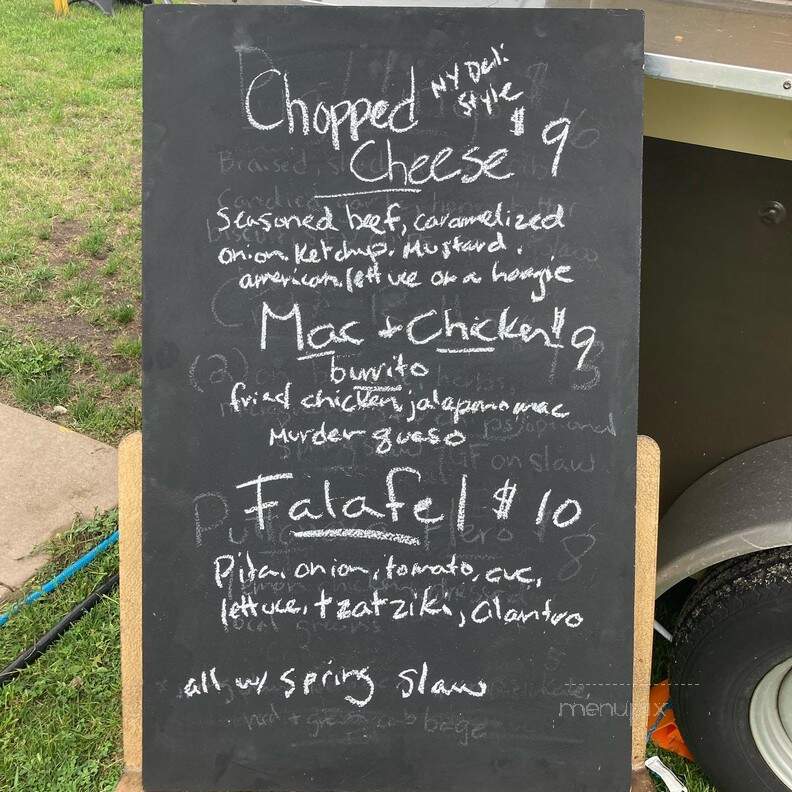 Chopped NY Deli Style
Cheese $9
Seasoned beef, caramelized
onion, Ketchup, Mustard,
american, lettuce on a hoagie
Mac + Chicken $9
burrito
fried chicken, jalapeno mac
Murder queso
Falafel $10
Pita, onion, tomato, cuc,
lettuce, tzatziki, cilantro
all w/ spring slaw
menupix